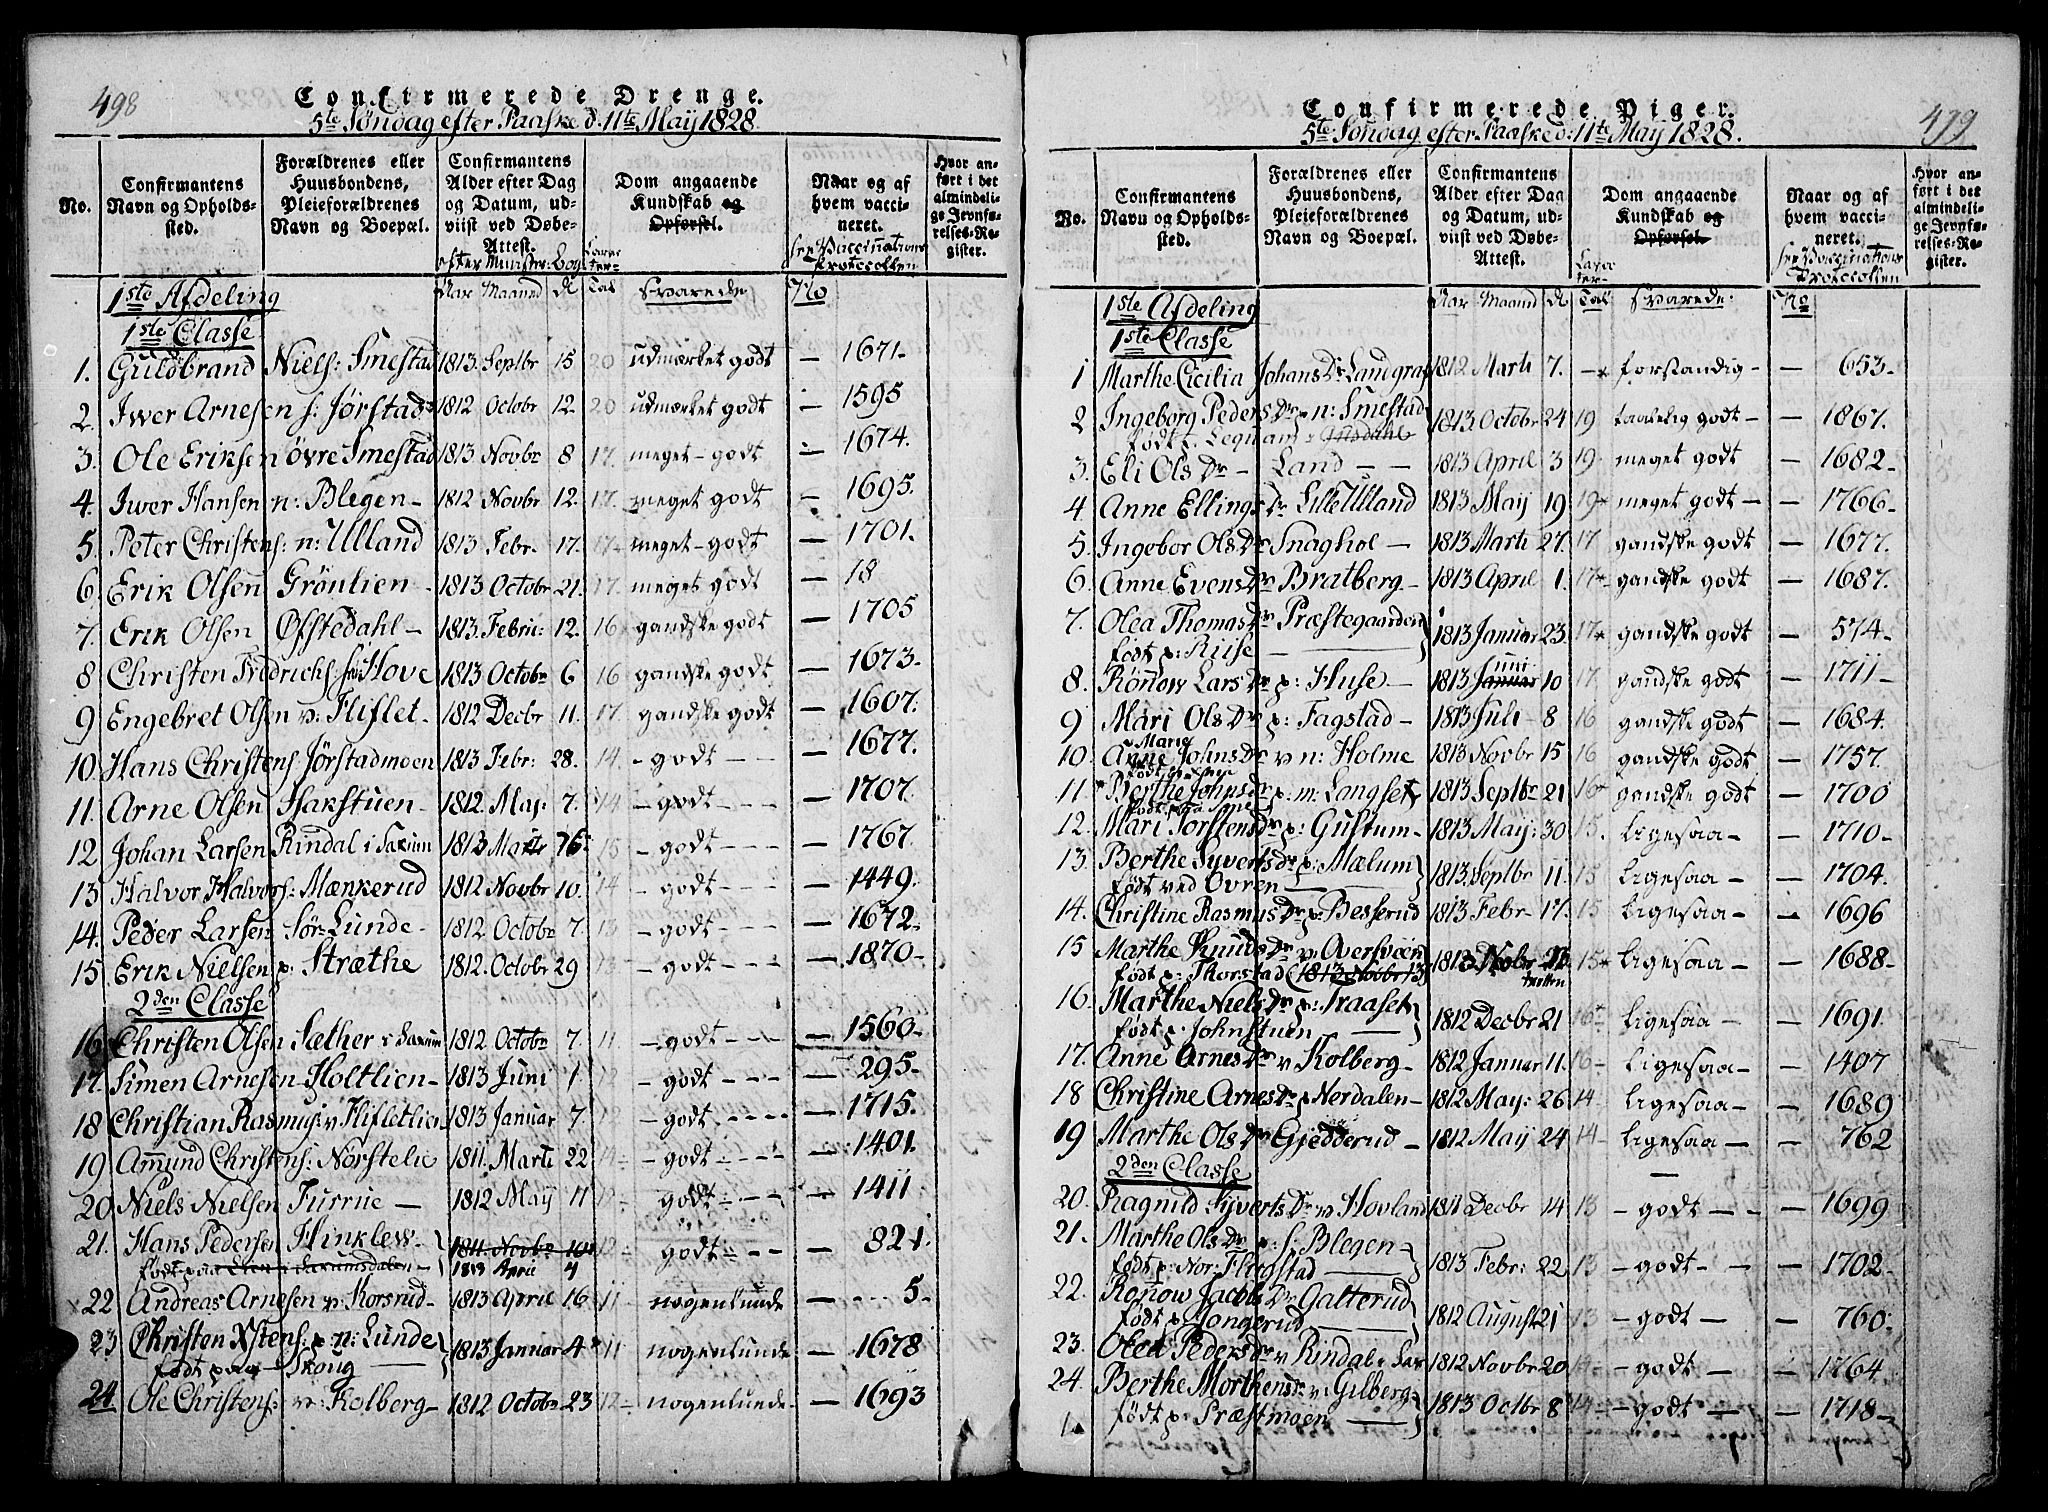 498
Confirmerede Drenge.
5te Søndag efter Paaske d: 11te May 1828.
No.
Confirmantens Navn og Opholds-sted.
Forældrenes eller Huusbondens, Pleieforældrenes Navn og Boepæl.
Confirmantens Alder efter Dag og Datum, ud-viist ved Døbe-Attest.
Dom angaaende Kundskab og Opførsel.
Naar og af hvem vacci-neret.
Hvor an-ført i det almindeli-ge Jevnfø-relses-Re-gister.
1ste Afdeling Aar Maaned d. Tal svarede No
1ste Classe
1. Guldbrand Niels: Smestad 1813. Septbr 15 20 udmærket godt — 1671.
2. Iver Arnesen s: Jørstad 1812 Octobr 12. 20 udmærket godt — 1595
3. Ole Eriksen øvre Smestad 1813 Novbr 8 17. meget godt — 1674.
4. Iver Hansen n: Blegen 1812 Novbr 12. 17. meget godt — 1695.
5. Peter Christens: n: Ulland 1813 Febr. 17. 17 meget godt — 1701.
6. Erik Olsen Grönlien 1813 Octobr 21. 17. meget godt — 18
7. Erik Olsen Øfstedahl 1813. Febru: 12. 16 gandske godt — 1705
8 Christen Fridrichs: Hove 1813 Octobr 6 16 gandske godt — 1673.
9 Engebret Olsen v: Fliflet 1812 Decbr 11. 17. gandske godt — 1607.
10. Hans Christens Jørstadmoen 1813 Febr: 28. 14. godt — 1677.
11. Arne Olsen Hakstuen 1812. May: 7. 14 godt — 1707.
12 Johan Larsen Rindal i Saxum 1813 Marti 15 godt — 1767.
13 Halvor Halvors: Mænkerud 1812 Novbr 10. 14 godt — 1449.
14. Peder Larsen Sör Lunde 1812 Octobr 7. 13 godt — 1672.
15. Erik Nielsen p: Stræthe 1812. Octobr 29 godt — 1870
2den Classe
16 Christen Olsen Sæther i Saxum 1812 Octobr 7. 11. godt — 1560
17. Simen Arnesen Holtlien 1813 Juni 1. 12 godt — 295
18 Christian Rasmus: v: Flifletlien 1813 Januar 7 12 godt — 1715.
19 Amund Christens: Nörstelie 1811. Marti 22 14 godt — 1401.
20 Niels Nielsen Furrue 1812 May 11 12 godt — 1411
21. Hans Pedersen Hinklew 1811 Novbr 10 12 godt — 821.
født paa i Saxumsdalen 1813 April 4
22 Andreas Arnesen v: Korsrud 1813 April 16 11 nogenlunde — 5
23 Christen Ystens: p n: Lunde 1813 Januar 4 11 nogenlunde — 1678
født paa Skoug
24 Ole Christens: v: Kolberg 1812 Octobr 23 12 nogenlunde — 1693
499
Confirmerede Piger.
5te Søndag efter Paaske d: 11te May 1828.
No.
Confirmantens Navn og Opholds-sted.
Forældrenes eller Huusbondens, Pleieforældrenes Navn og Boepæl.
Confirmantens Alder efter Dag og Datum, ud-viist ved Døbe-Attest.
Dom angaaende Kundskab og Opførsel.
Naar og af hvem vacci-neret.
Hvor an-ført i det almindeli-ge Jevnfø-relses-Re-gister.
1ste Afdeling Aar Maaned d. Tal svarede: No
1ste Classe
1 Marthe Cicilia Johans Dr Landgraf 1812 Marti 7. forstandig — 653
2 Ingeborg Peders Dr n: Smestad 1813. Octobr 24 19 taalelig godt — 1867.
3. Eli Ols Dr Land 1813 April 3 19 meget godt — 1682
4. Anne Ellings Dr Lille Ulland 1813 May 19 19 meget godt — 1766
5. Ingebor Ols Dr Snaghol 1813 Marti 27. 17 gandske godt — 1677.
6. Anne Evens Dr Bratberg 1813 April 1. 17 gandske godt — 1687.
7. Olea Thomas Dr Præstegaarden 1813 Januar 23 17 gandske godt — 574
født p: Riise
8. Rönow Lars Dr p: Huse 1813 Januar Juni 10 17 gandske godt — 1711
9 Mari Ols Dr p: Fagstad 1813 Juli 8 16 gandske godt — 1684.
10. Anne Marie Johns Dr v n: Holme 1813 Novbr 15 16 gandske godt — 1757.
11 Berthe Johns Dr p: m: Langset 1813 Septbr 21 16 gandske godt — 1700
12. Mari Torstens Dr p: Gustum 1813 May 30 15. ligesaa — 1710
13. Berthe Syverts Dr p: Mælum 1813. Septbr 11. 15 ligesaa — 1704.
født ved Övren
14. Christine Rasmus Dr p: Besserud 1813 Febr 17. 15 ligesaa — 1696
15 Marthe Knuds Dr v: Oversveen 1813 Novbr 15 ligesaa — 1688
født p: Thorstad (1813 Novbr 13)
16. Marthe Niels Dr p: Traaset 1812 Decbr 21 16 ligesaa — 1691.
født p: Johnstuen
17. Anne Arnes Dr v Kolberg 1812 Januar 11. 16 ligesaa — 1407
18 Christine Arnes Dr p Nordalen 1812 May: 26 14 ligesaa — 1689
19 Marthe Ols Dr Gjedderud 1812 May 24 14 ligesaa — 762
2den Classe
20. Ragnild Syverts Dr v Hovland 1811 Decbr 14 13 godt — 1699
21. Marthe Ols Dr p: s: Blegen 1813 Febr: 22 13 godt — 1702
født p: Nor: Flugstad
22. Ronow Jacobs Dr Galterud 1812 August 21 13 godt — 760
født p: Jongerud
23. Olea Peders Dr v Rindal i Sax 1812 Novbr 20 14 godt — 1764
24. Berthe Morthens Dr v: Gilberg 1813 Octbr 8 14 godt — 1718
født p: Præstmoen